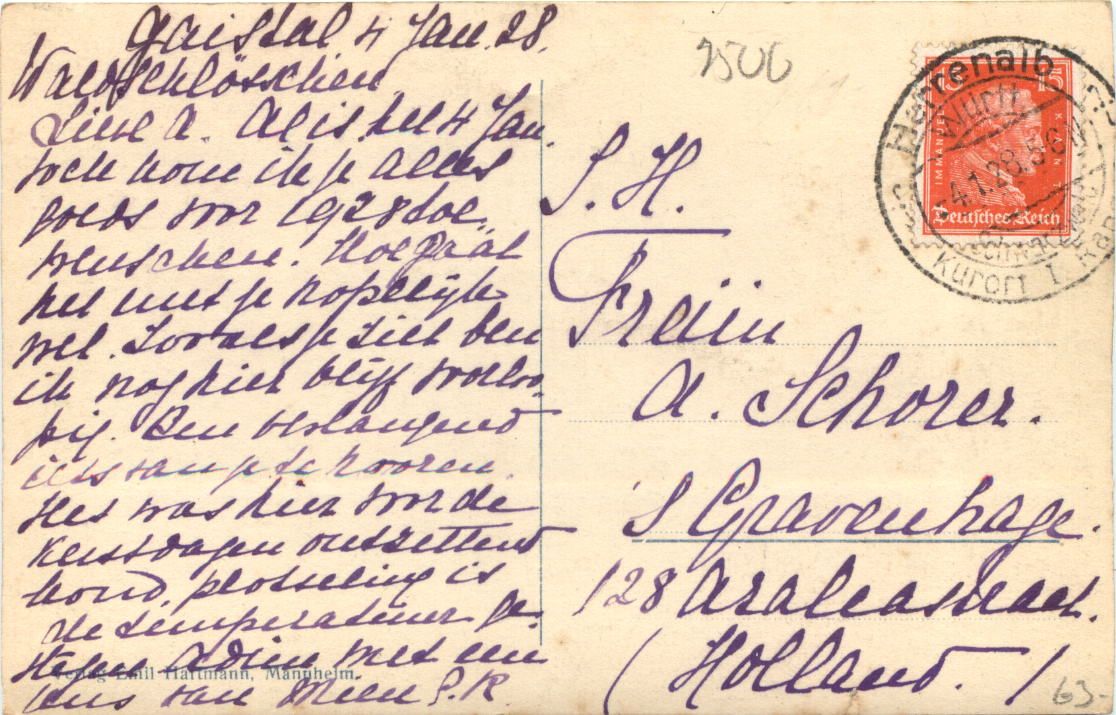 Gaistal 4 Jan. 28.
Waldschlösschen
Lieve A. Al is het 4 Jan.
toch kom ik je alles
goeds voor 1928 toe-
wenschen. Hoe gaat
het met je hopelijk
wel. Zooals je ziet ben
ik nog hier blijf voorloo-
pig. Ben verlangend
iets van je te hooren.
Het was hier voor de
kerstdagen ontzettend
koud plotseling is
de temperatuur ge-
stegen Adieu met een
kus van
Verlag Emil Hartmann, Mannheim.
2506
S. H.
Freiin
A. Schorer.
s Gravenhage.
128 Azaleastraat.
(Holland.)
63-
15 15
IMMANUEL KANT
Deutsches Reich
Herrenalb
Württ
4.1.28. 5-6 N
Kurort i.